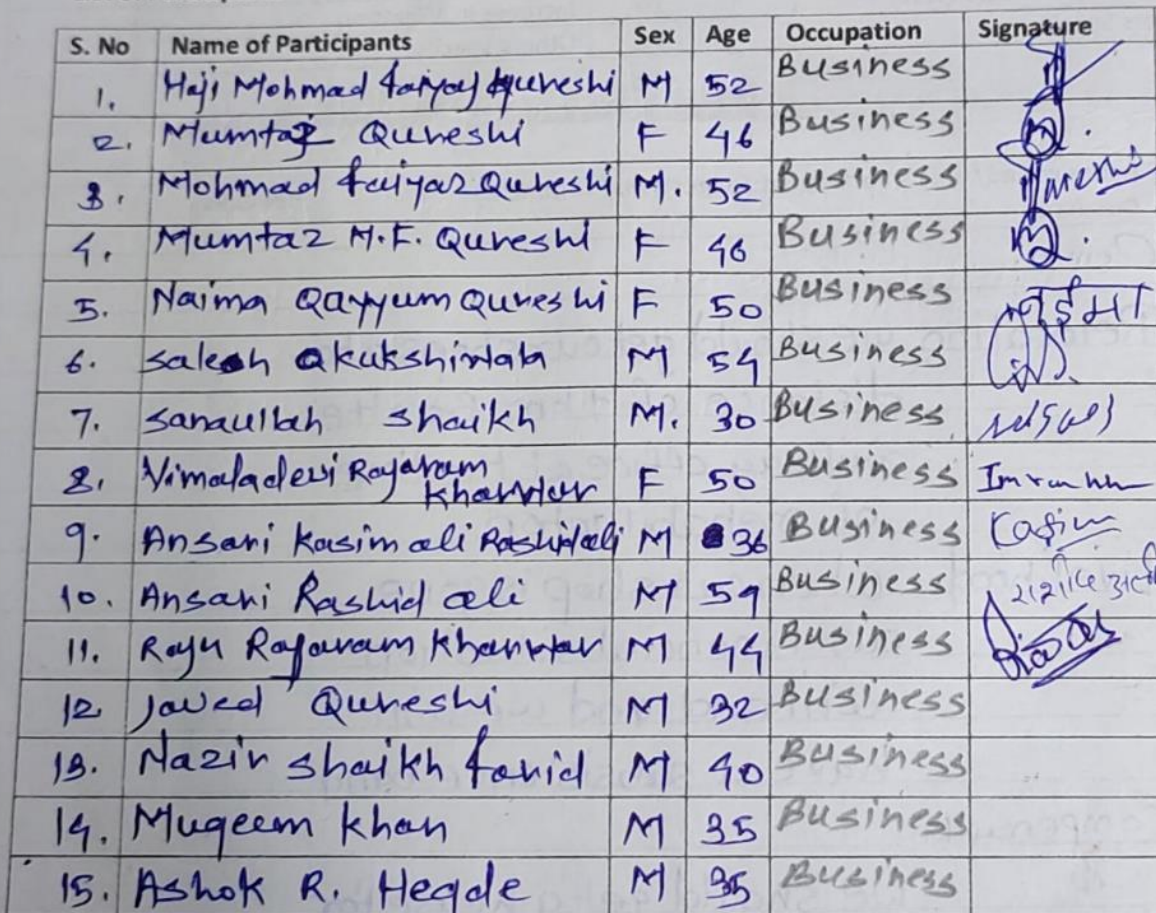 S. No Name of Participants Sex Age Occupation Signature
1. Haji Mohmad faiyaj Qureshi M 52 Business
2. Mumtaz Qureshi F 46 Business
3. Mohmad faiyaz Qureshi M. 52 Business
4. Mumtaz M.F. Qureshi F 46 Business
5. Naima Qayyum Qureshi F 50 Business नईमा
6. Saleh Akukshiwala M 54 Business
7. Sanaullah Shaikh M. 30 Business
8. Vimaladevi Rajaram Khanwar F 50 Business
9. Ansari Kasim ali Rashidali M 36 Business Kasim
10. Ansari Rashid ali M 59 Business
11. Raju Rajaram Khanwar M 44 Business
12 Javed Qureshi M 32 Business
13. Nazir Shaikh farid M 40 Business
14. Muqeem Khan M 35 Business
15. Ashok R. Hegde M 35 Business